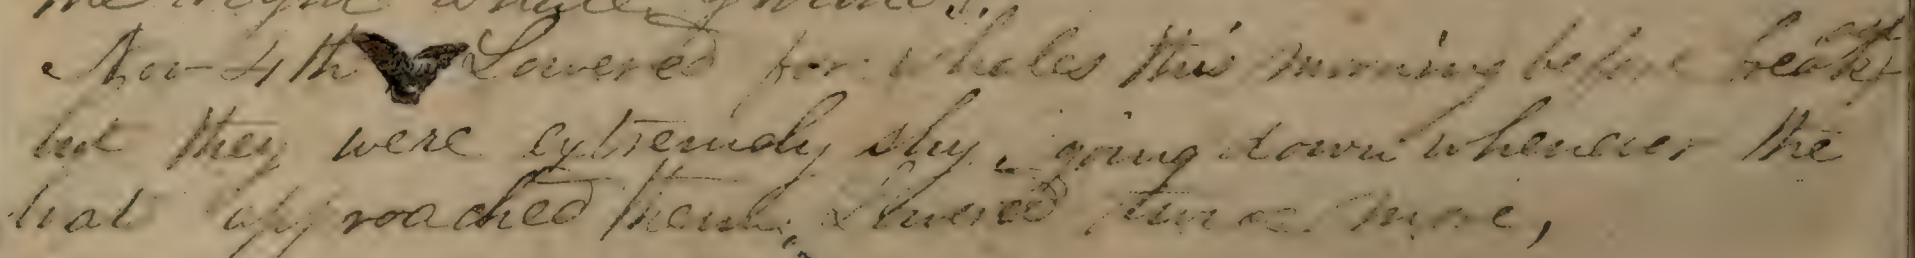 the right whale ground.
Nov 4th Lowered for whales this morning before break
but they were extremely shy, going down whenever the
boat approached them. Lowered twice more,